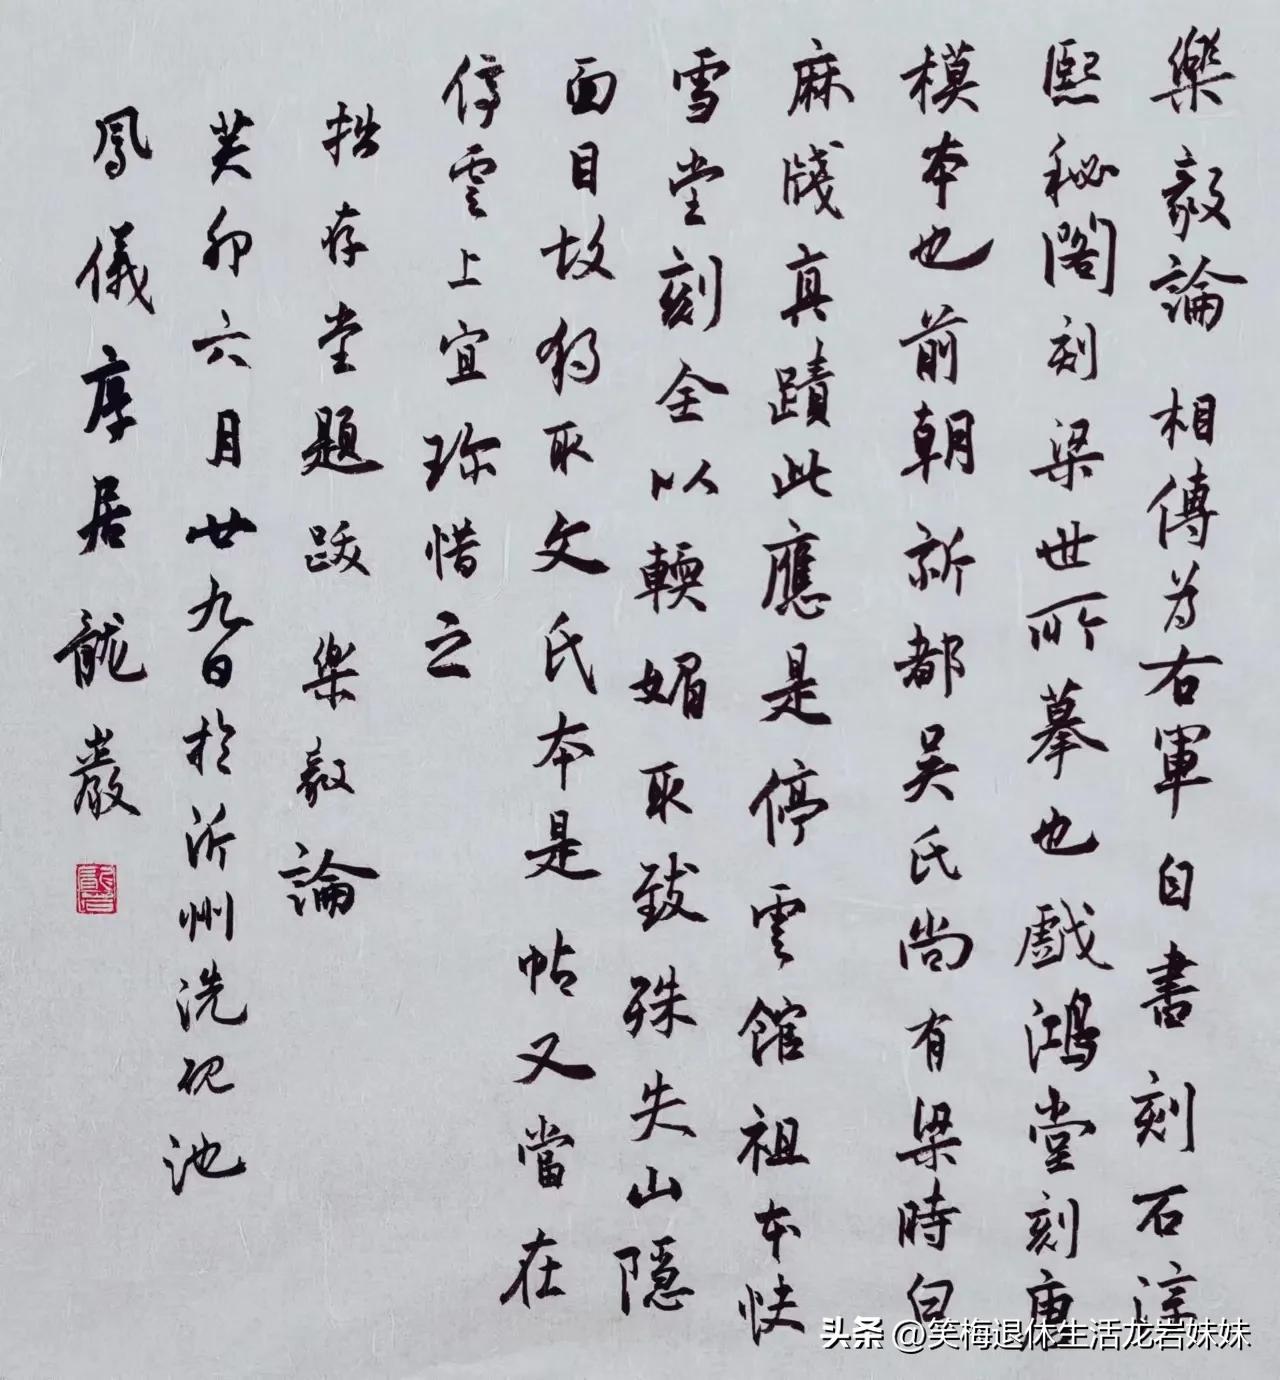 樂毅論相傳為右軍自書刻石淳
熙秘閣刻梁世所摹也戲鴻堂刻唐
模本也前朝新都吳氏尚有梁時白
麻牋真蹟此應是停雲館祖本快
雪堂刻全以輭媚取致殊失山隱
面目故獨取文氏本是帖又當在
停雲上宜珍惜之
拙存堂題跋樂毅論
癸卯六月廿九日於沂州洗硯池
鳳儀序居龍巖
头条 @笑梅退休生活龙岩妹妹